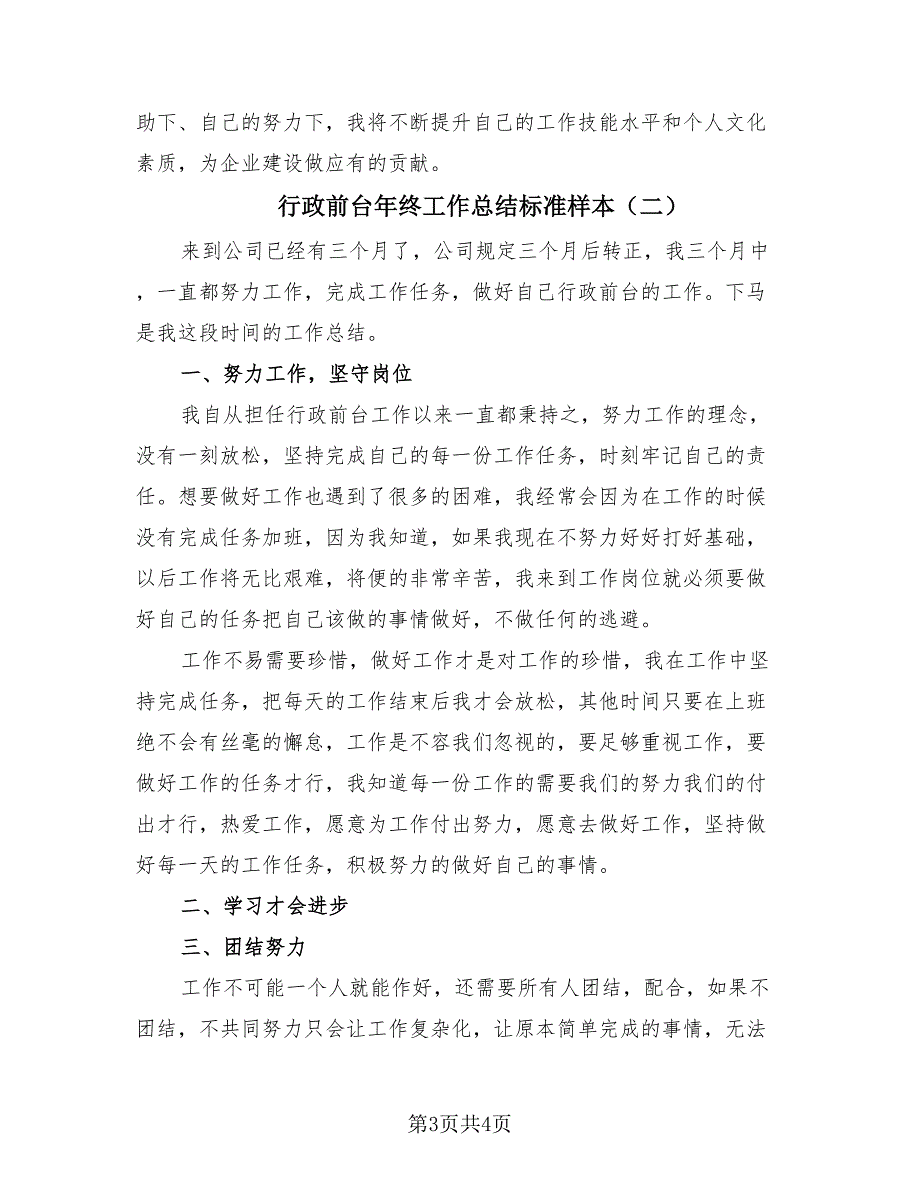 助下、自己的努力下，我将不断提升自己的工作技能水平和个人文化
素质，为企业建设做应有的贡献。
行政前台年终工作总结标准样本（二）
来到公司已经有三个月了，公司规定三个月后转正，我三个月中
，一直都努力工作，完成工作任务，做好自己行政前台的工作。下马
是我这段时间的工作总结。
一、努力工作，坚守岗位
我自从担任行政前台工作以来一直都秉持之，努力工作的理念，
没有一刻放松，坚持完成自己的每一份工作任务，时刻牢记自己的责
任。想要做好工作也遇到了很多的困难，我经常会因为在工作的时候
没有完成任务加班，因为我知道，如果我现在不努力好好打好基础，
以后工作将无比艰难，将便的非常辛苦，我来到工作岗位就必须要做
好自己的任务把自己该做的事情做好，不做任何的逃避。
工作不易需要珍惜，做好工作才是对工作的珍惜，我在工作中坚
持完成任务，把每天的工作结束后我才会放松，其他时间只要在上班
绝不会有丝毫的懈怠，工作是不容我们忽视的，要足够重视工作，要
做好工作的任务才行，我知道每一份工作的需要我们的努力我们的付
出才行，热爱工作，愿意为工作付出努力，愿意去做好工作，坚持做
好每一天的工作任务，积极努力的做好自己的事情。
二、学习才会进步
三、团结努力
工作不可能一个人就能作好，还需要所有人团结，配合，如果不
团结，不共同努力只会让工作复杂化，让原本简单完成的事情，无法
第3页共4页